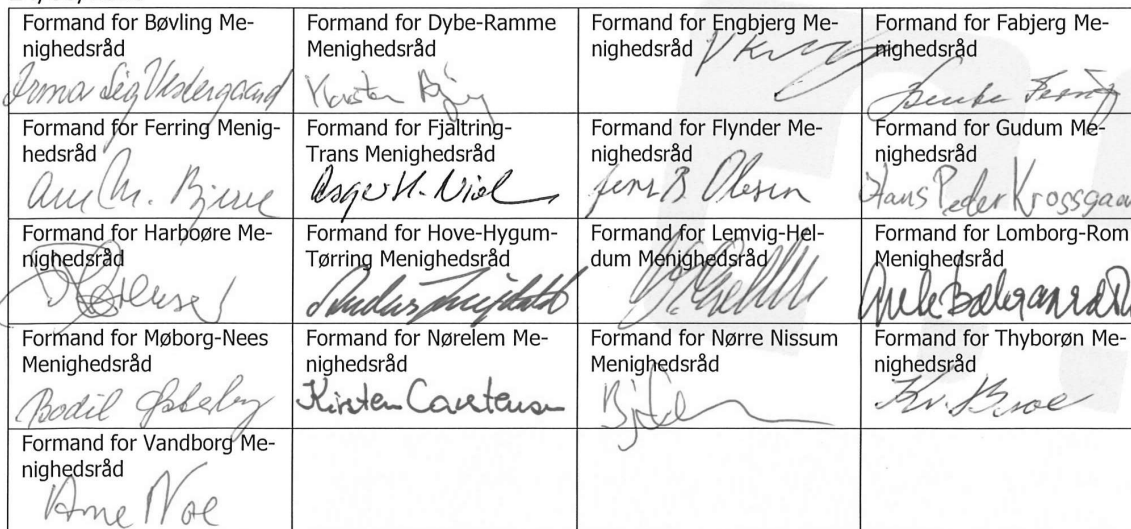 Formand for Bøvling Me-
nighedsråd
Irma Sig Vestergaard
Formand for Dybe-Ramme
Menighedsråd
Karsten
Formand for Engbjerg Me-
nighedsråd
Formand for Fabjerg Me-
nighedsråd
Formand for Ferring Menig-
hedsråd
M.
Formand for Fjaltring-
Trans Menighedsråd
Asger H.
Formand for Flynder Me-
nighedsråd
Jens B. Olesen
Formand for Gudum Me-
nighedsråd
Hans Peder Krossgaa
Formand for Harboøre Me-
nighedsråd
Formand for Hove-Hygum-
Tørring Menighedsråd
Formand for Lemvig-Hel-
dum Menighedsråd
Formand for Lomborg-Rom
Menighedsråd
Formand for Møborg-Nees
Menighedsråd
Bodil
Formand for Nørelem Me-
nighedsråd
Kirsten Carstensen
Formand for Nørre Nissum
Menighedsråd
Formand for Thyborøn Me-
nighedsråd
Kr. Broe
Formand for Vandborg Me-
nighedsråd
Arne Noe